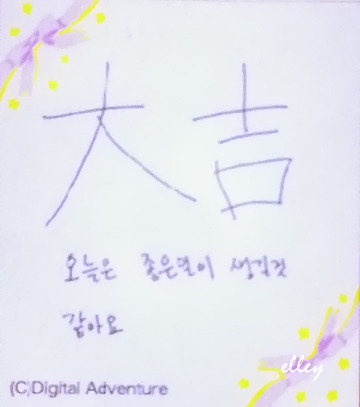 大吉
오늘은 좋은일이 생길것
같아요
elley
(C)Digital Adventure